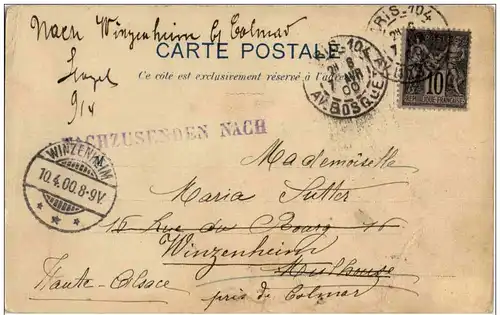 Nach Winzenheim bj Colmar
9/4
CARTE POSTALE
Ce côté est exclusivement réservé à l'adresse
PARIS_104
PARIS_104
AV. BOSQUET
10
RÉPUBLIQUE FRANÇAISE
NACHZUSENDEN NACH
WINZENHEIM
10.4.00.8-9V.
Mademoiselle
Maria Sutter
16 Rue du Bourg 16
Winzenheim
Mulhouse
Haute-Alsace
près de Colmar